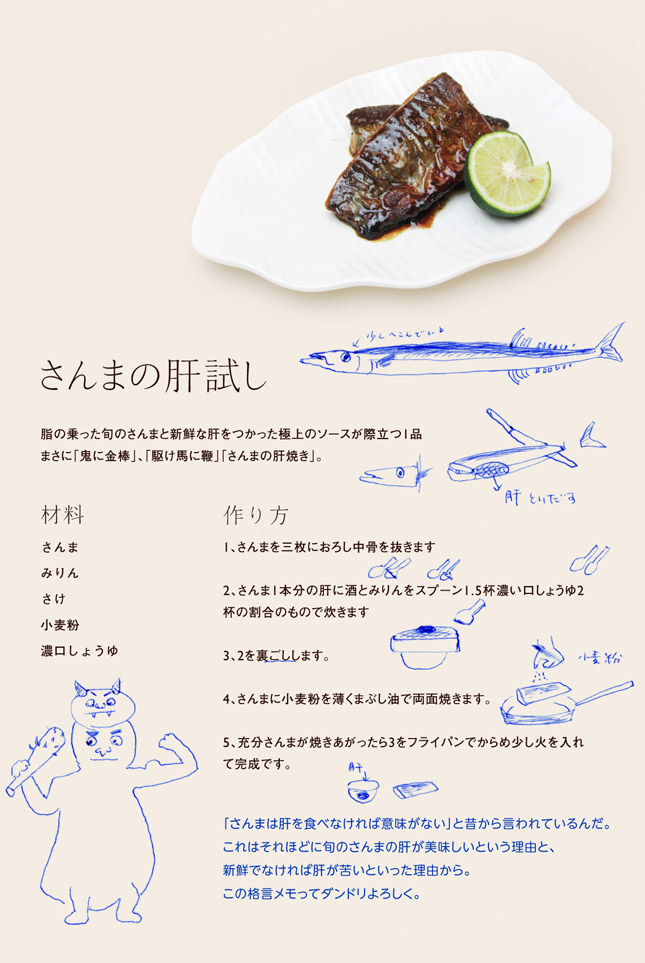 少しへこんでいる
さんまの肝試し
脂の乗った旬のさんまと新鮮な肝をつかった極上のソースが際立つ1品
まさに「鬼に金棒」、「駆け馬に鞭」「さんまの肝焼き」。
肝 とりだす
材料
さんま
みりん
さけ
小麦粉
濃口しょうゆ
作り方
1、さんまを三枚におろし中骨を抜きます
2、さんま1本分の肝に酒とみりんをスプーン1.5杯濃い口しょうゆ2
杯の割合のもので炊きます
3、2を裏ごしします。
小麦粉
4、さんまに小麦粉を薄くまぶし油で両面焼きます。
5、充分さんまが焼きあがったら3をフライパンでからめ少し火を入れ
て完成です。
肝
「さんまは肝を食べなければ意味がない」と昔から言われているんだ。
これはそれほどに旬のさんまの肝が美味しいという理由と、
新鮮でなければ肝が苦いといった理由から。
この格言メモってダンドリよろしく。